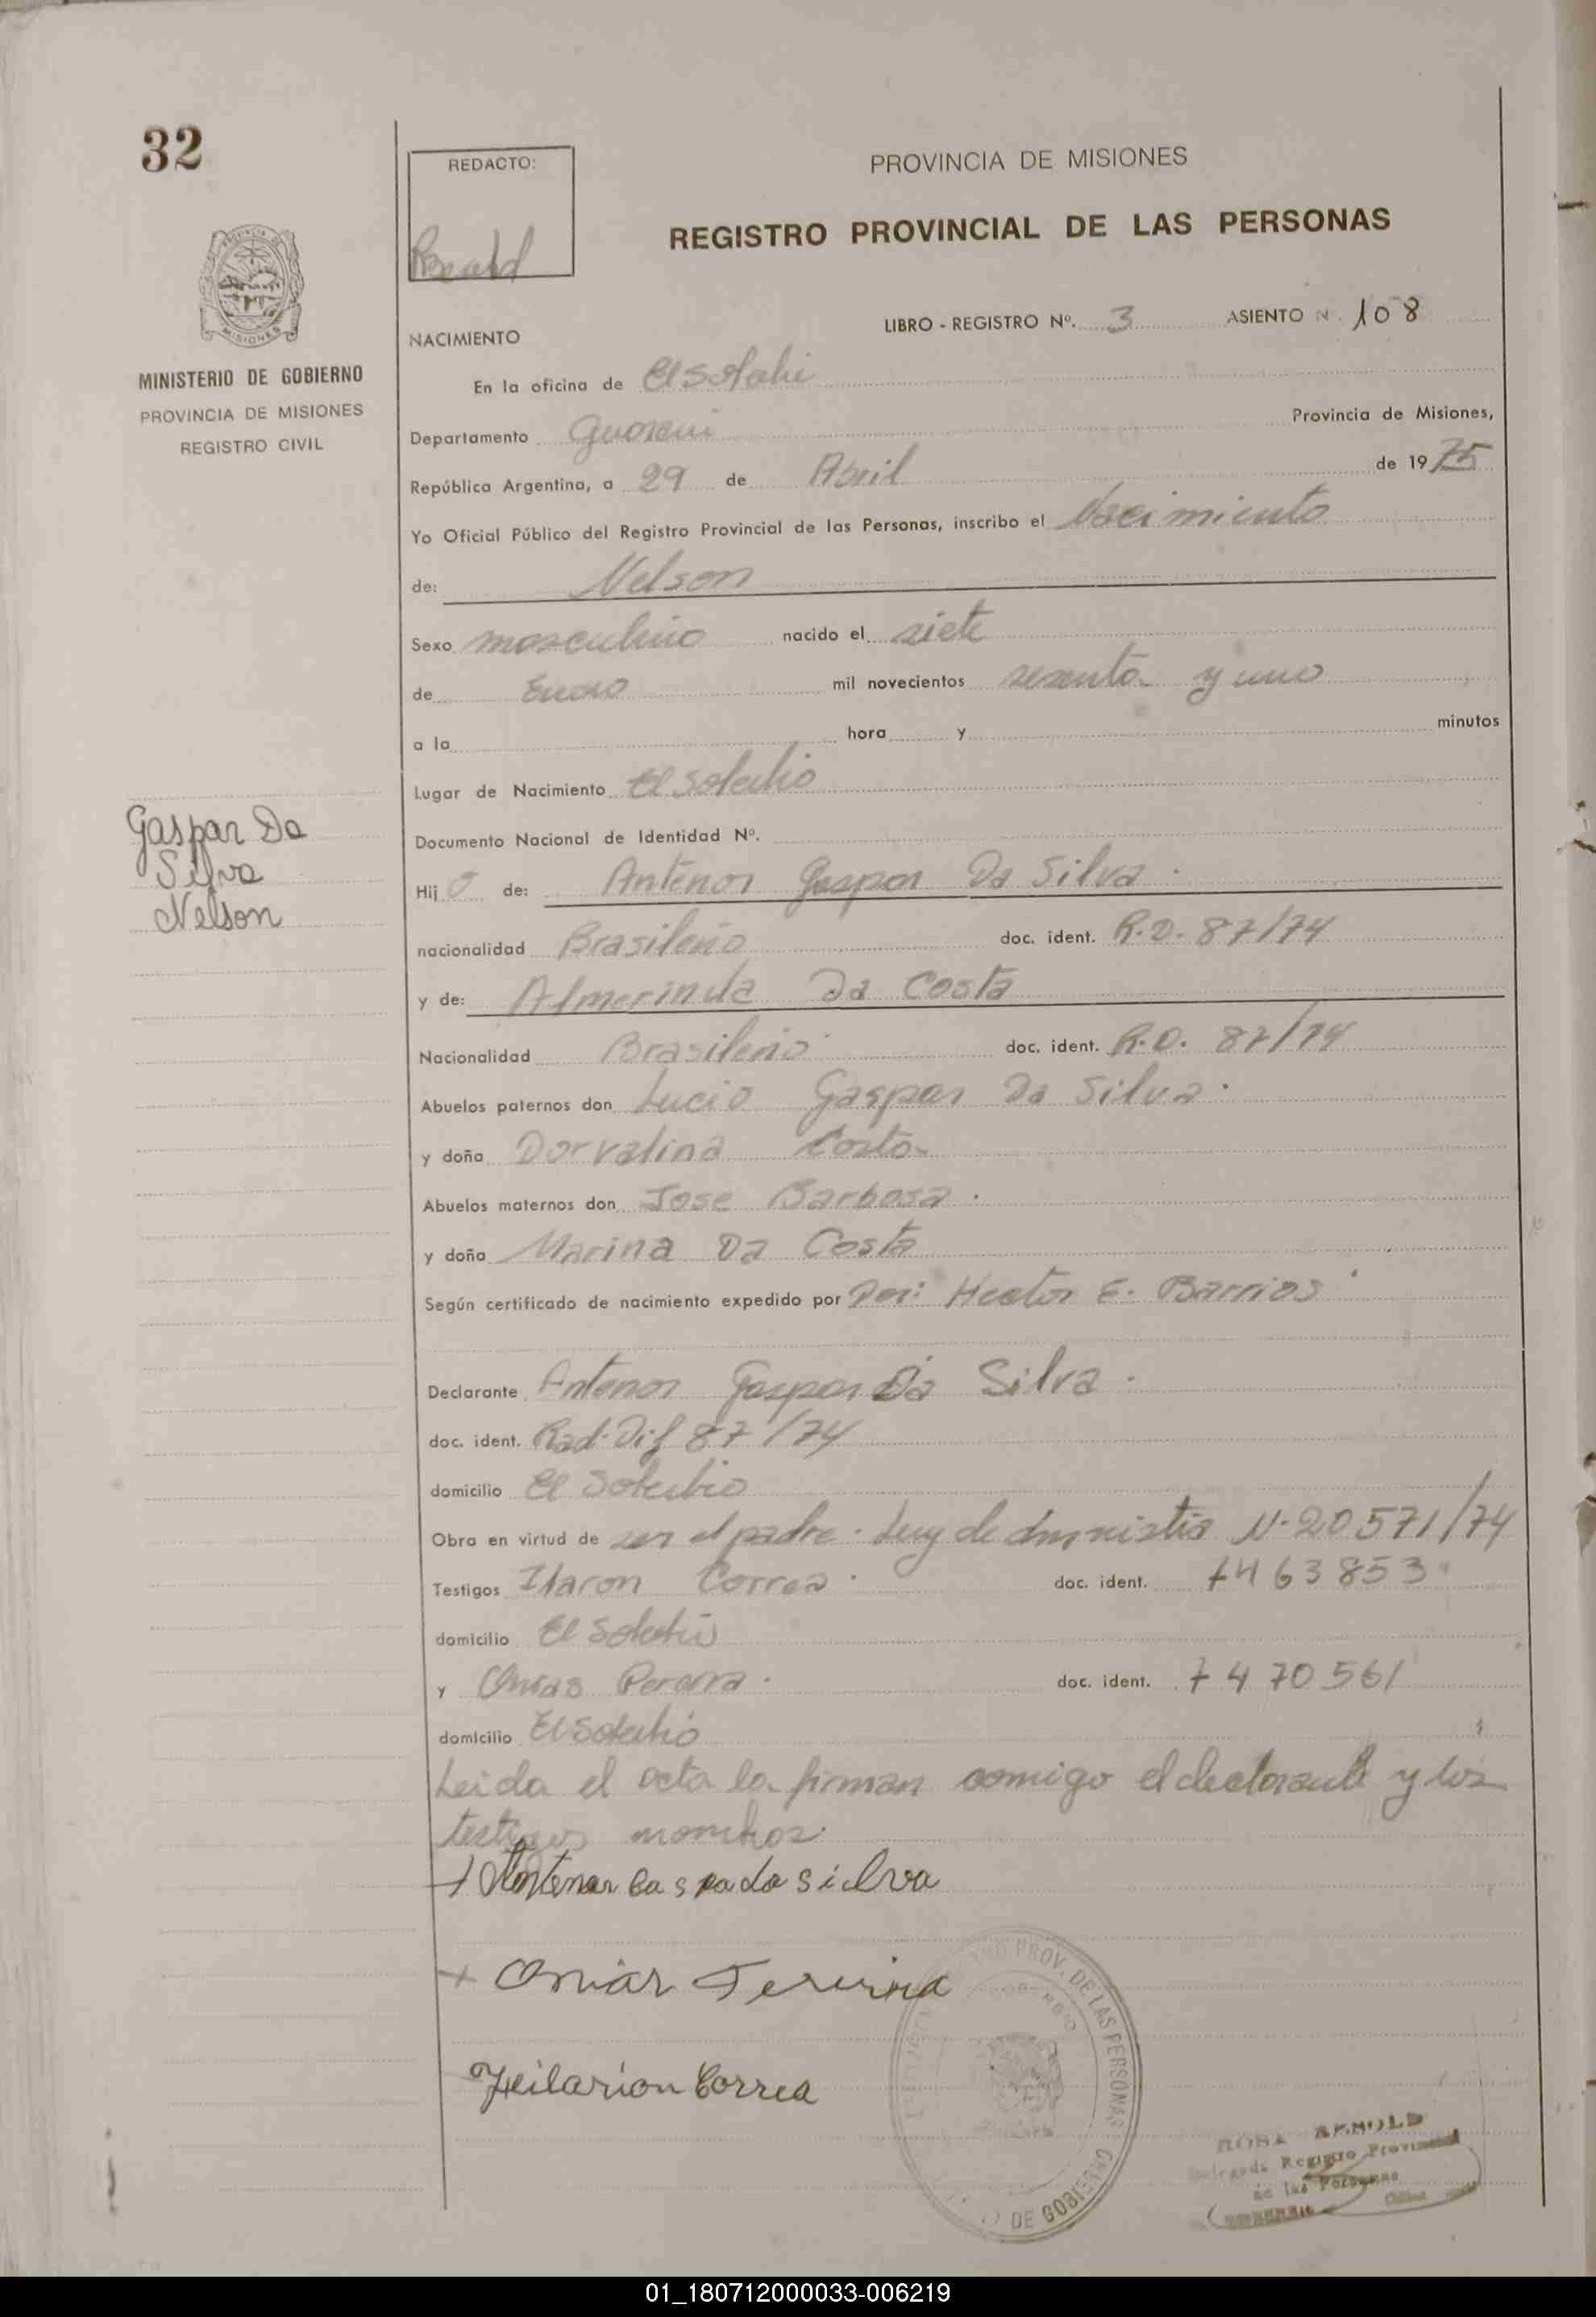 32
REDACTO:
PROVINCIA DE MISIONES
REGISTRO PROVINCIAL DE LAS PERSONAS
MINISTERIO DE GOBIERNO
PROVINCIA DE MISIONES
REGISTRO CIVIL
LIBRO - REGISTRO Nº. 3 ASIENTO N. 108
NACIMIENTO
En la oficina de El Soberbio
Departamento Guarani Provincia de Misiones,
República Argentina, a 29 de Abril de 1975
Yo Oficial Público del Registro Provincial de las Personas, inscribo el Nacimiento
de: Nelson
Sexo masculino nacido el siete
de Enero mil novecientos sesenta y uno
a la hora y minutos
Lugar de Nacimiento El Soberbio
Documento Nacional de Identidad Nº.
Gaspar Da
Silva
Nelson
Hij o de: Antenor Gaspar Da Silva.
nacionalidad Brasileño doc. ident. R.D. 87/74
y de: Almerinda Da Costa
Nacionalidad Brasileño doc. ident. R.D. 87/74
Abuelos paternos don Lucio Gaspar Da Silva.
y doña Dorvalina Costa
Abuelos maternos don Jose Barbosa.
y doña Marina Da Costa
Según certificado de nacimiento expedido por Por: Hector E. Barrios
Declarante Antenor Gaspar Da Silva.
doc. ident. Rad. Dif 87/74
domicilio El Soberbio
Obra en virtud de ser el padre. Ley de Amnistia N-20571/74
Testigos Correa. doc. ident. 7463853
domicilio El Soberbio
y Pereira. doc. ident. 7470561
domicilio El Soberbio
Leida el acta la firman comigo el declarante y los
testigos
+ Antenor Gaspa da silva
+ Pereira
Heilarion Correa
PROV. DE LAS PERSONAS
DE GOBIERNO
ROSA ARNOLD
Delegada Registro Provincial
de las Personas
01_180712000033-006219